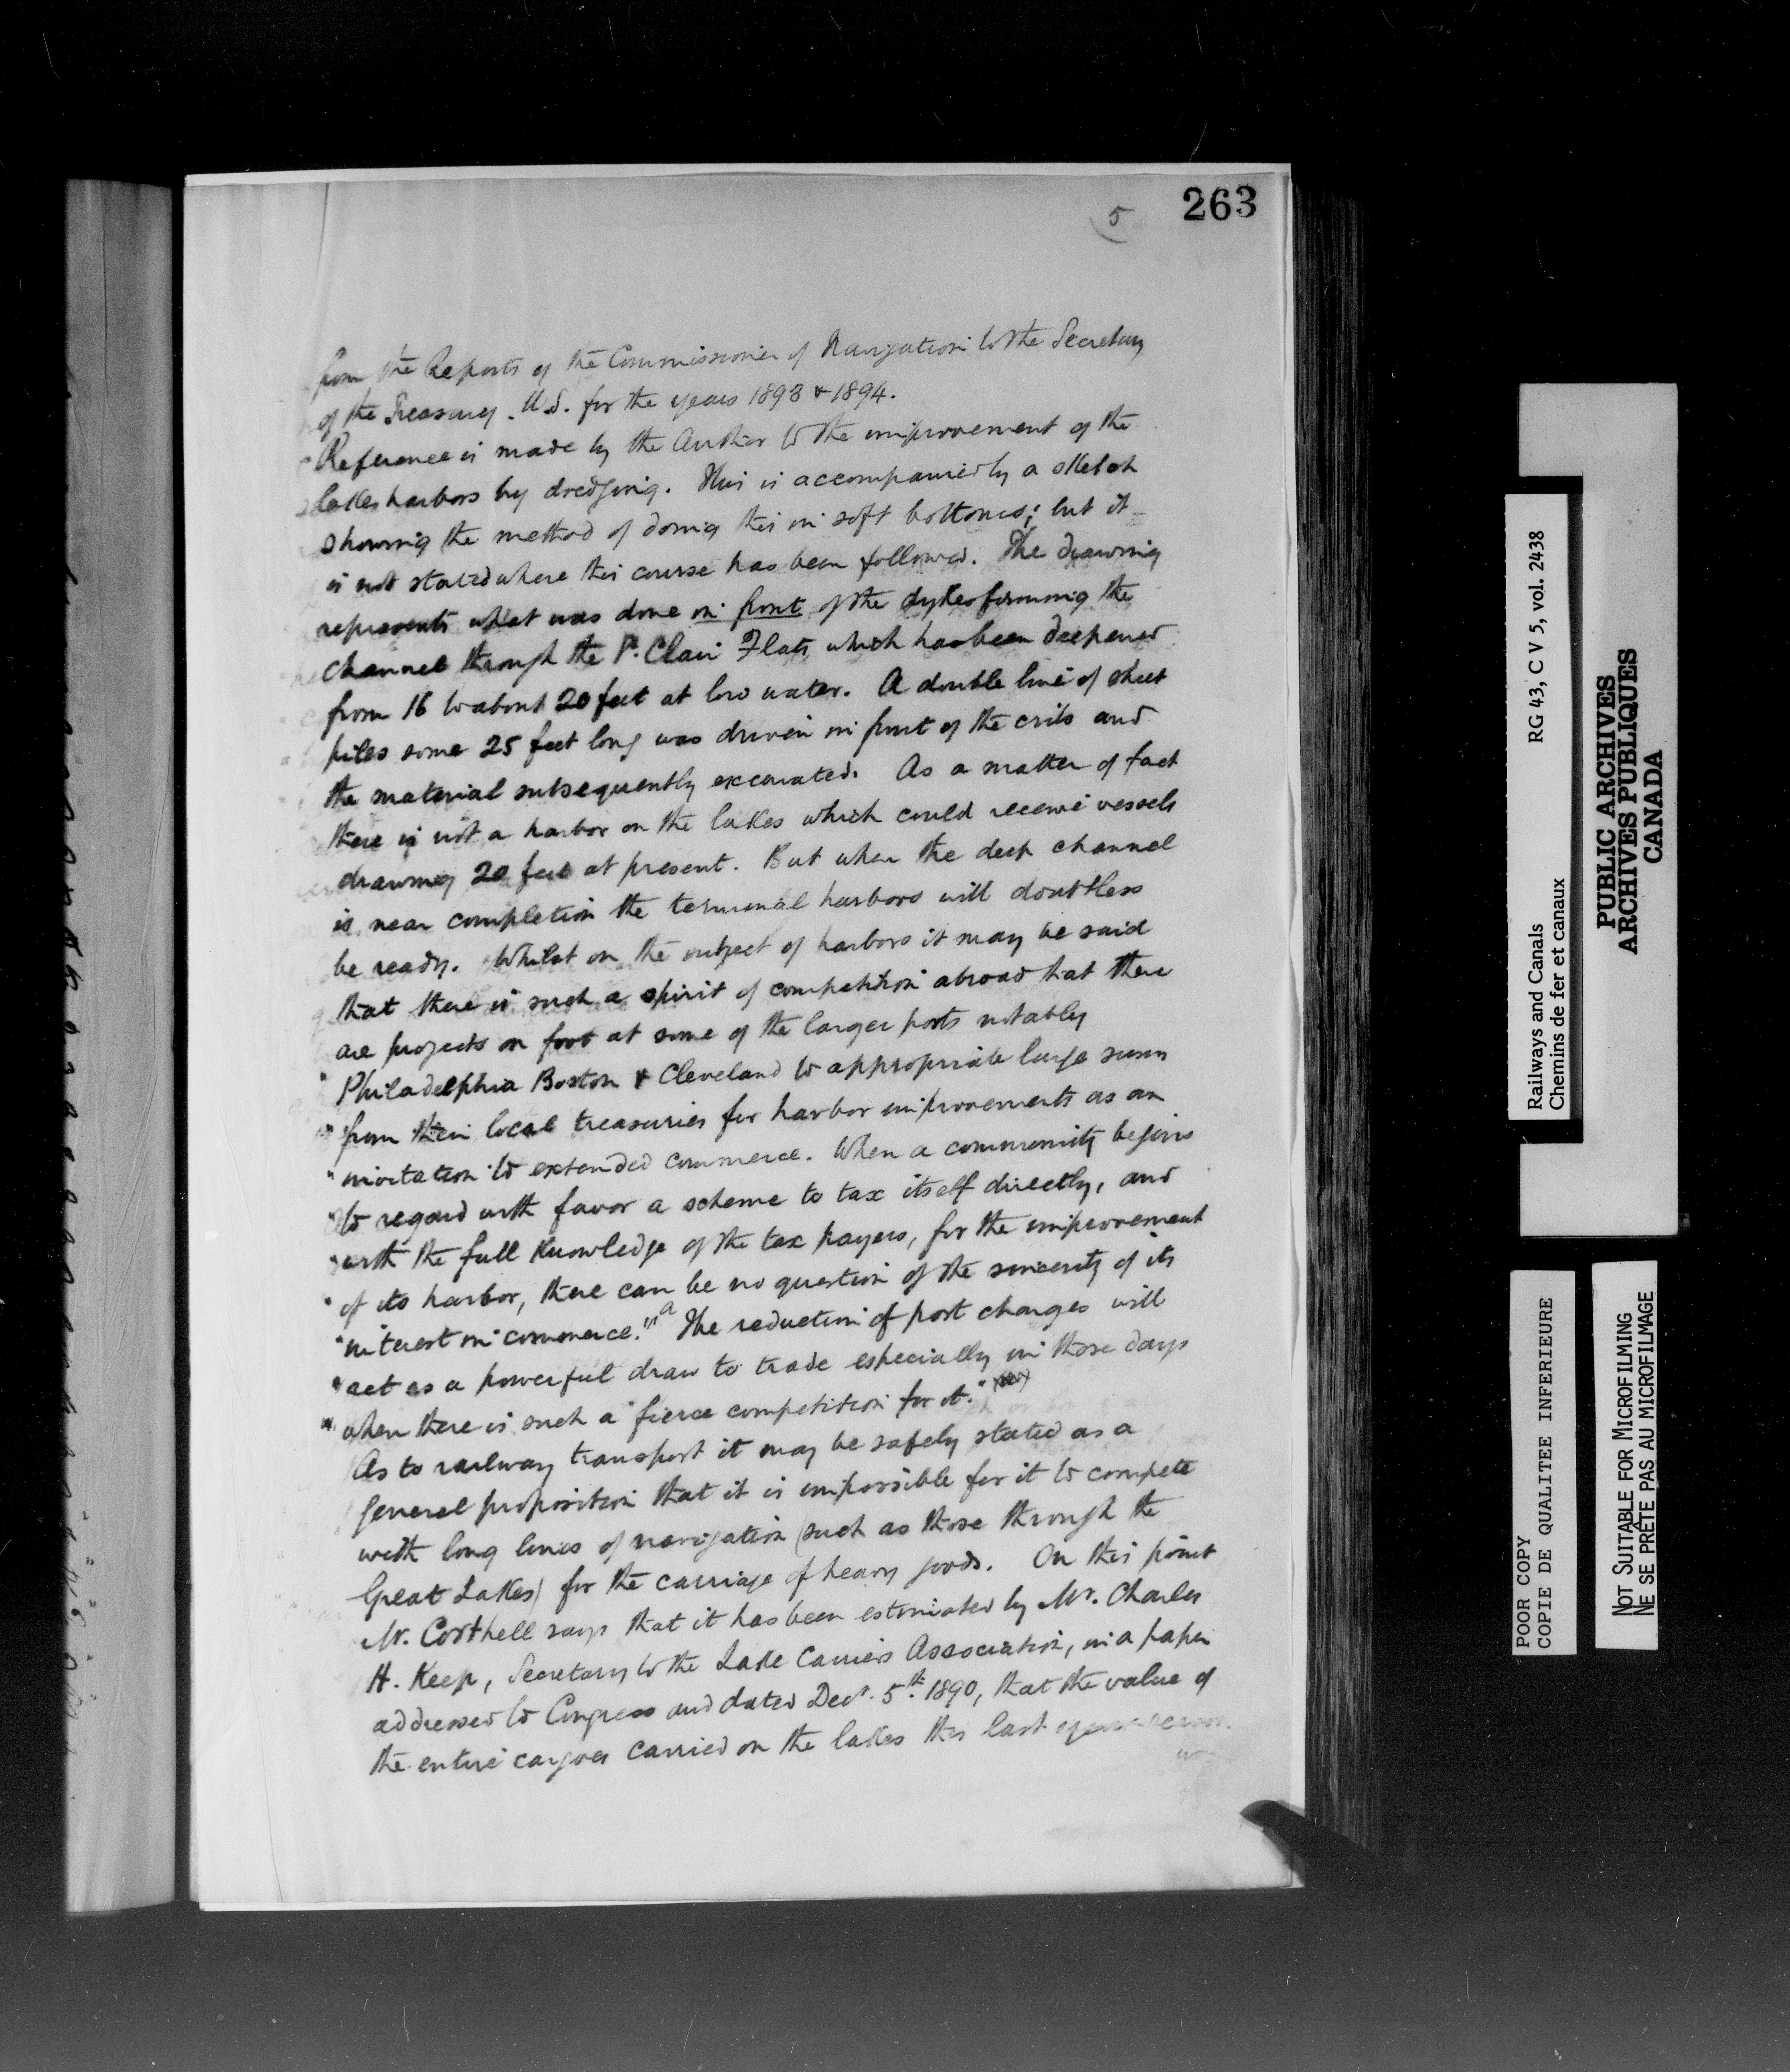 263
5
from the Reports of the Commissioner of Navigation to the Secretary
of the Treasury. U.S. for the years 1893 & 1894.
Reference is made by the Author to the improvement of the
lakes harbors by dredging. This is accompanied by a sketch
showing the method of doing this in soft bottoms; but it
is not stated where this course has been followed. The drawing
represents what was done in front of the dykes forming the
channel through the St. Clair Flats which has been deepened
from 16 to about 20 feet at low water. A double line of sheet
piles some 25 feet long was driven in front of the cribs and
the material subsequently excavated. As a matter of fact
there is not a harbor on the lakes which could receive vessels
drawing 20 feet at present. But when the deep channel
is near completion the terminal harbors will doubtless
be ready. Whilst on the subject of harbors it may be said
that there is such a spirit of competition abroad that there
are projects on foot at some of the larger ports notably
"Philadelphia Boston & Cleveland to appropriate large sums
"from their local treasuries for harbor improvements as an
"invitation to extended commerce. When a community begins
"to regard with favor a scheme to tax itself directly, and
"with the full knowledge of the tax payers, for the improvement
"of its harbor, there can be no question of the sincerity of its
"interest in commerce."" a The reduction of port charges will
"act as a powerful draw to trade especially in those days
"when there is such a fierce competition for it."
As to railway transport it may be safely stated as a
general proposition that it is impossible for it to compete
with long lines of navigation (such as those through the
Great Lakes) for the carriage of heavy goods. On this point
Mr. Corthell says that it has been estimated by Mr. Charles
H. Keep, Secretary to the Lake Carriers Association, in a paper
addressed to Congress and dated Decr. 5th. 1890, that the value of
the entire cargoes carried on the lakes this last
Railways and Canals RG 43, C V 5, vol. 2438
Chemins de fer et canaux
PUBLIC ARCHIVES
ARCHIVES PUBLIQUES
CANADA
POOR COPY
COPIE DE QUALITEE INFERIEURE
NOT SUITABLE FOR MICROFILMING
NE SE PRÊTE PAS AU MICROFILMAGE